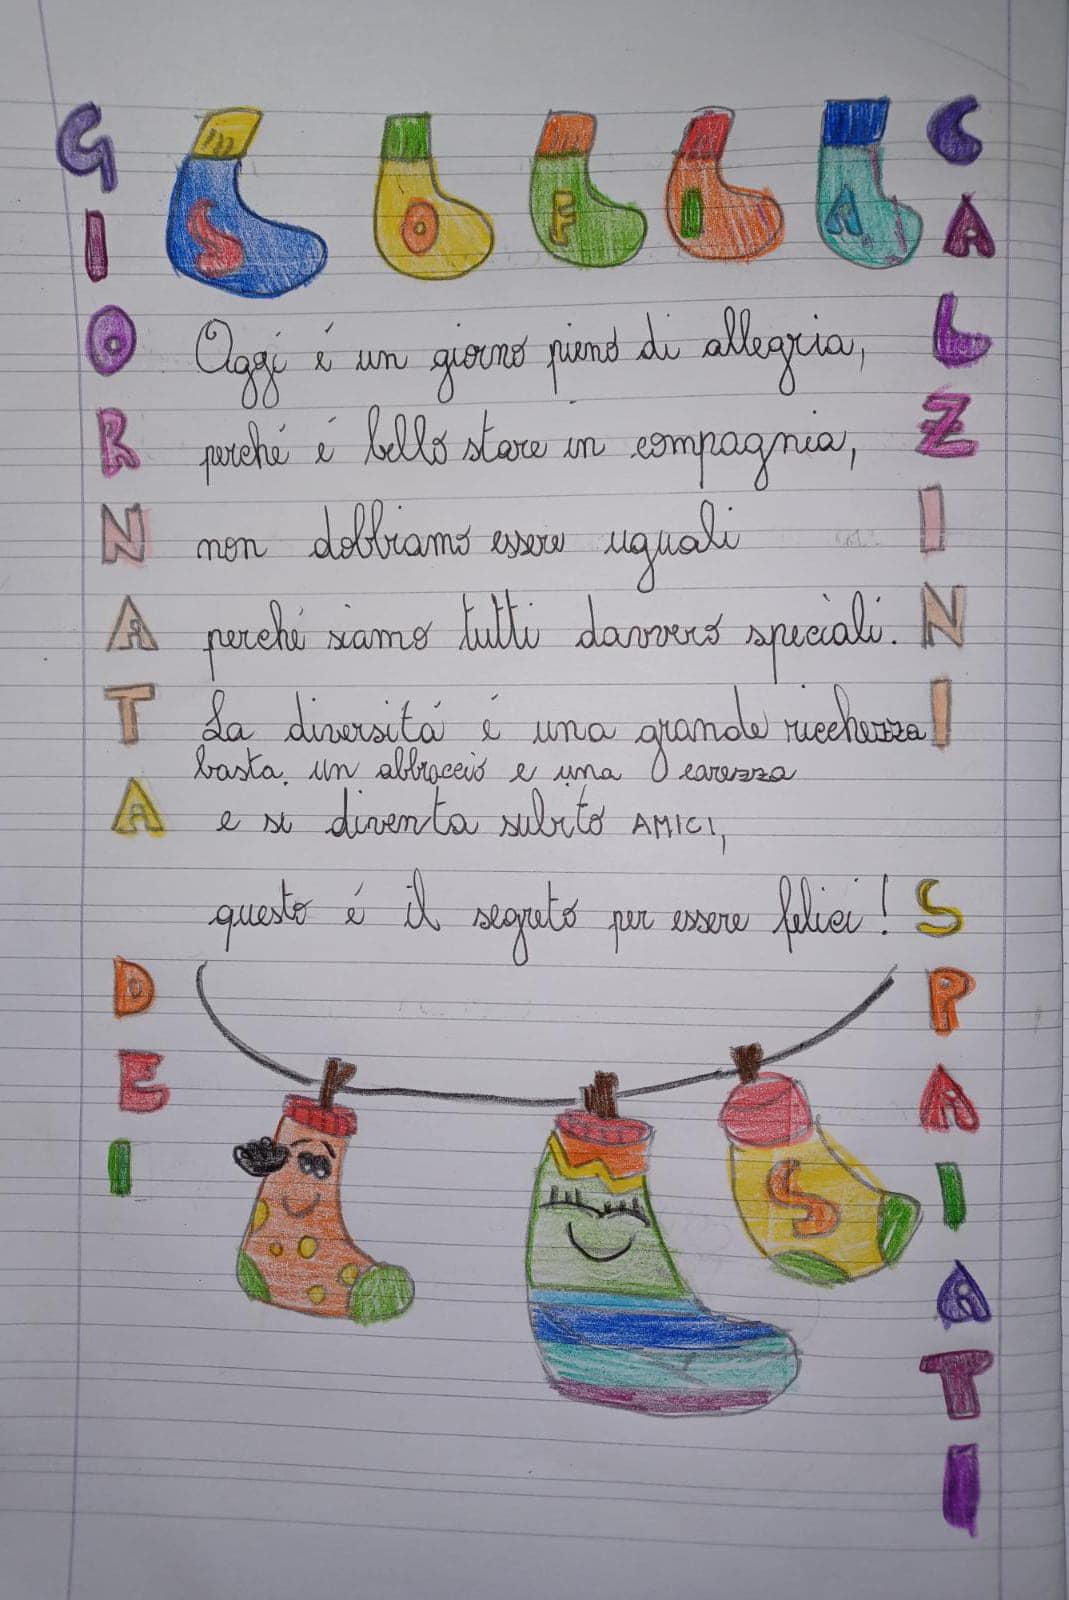 GIORNATA
DEI
CALZINI
SPAIATI
SOFIA
Oggi é un giorno pieno di allegria,
perché é bello stare in compagnia,
non dobbiamo essere uguali
perché siamo tutti davvero speciali.
La diversitá é una grande ricchezza
basta un abbraccio e una carezza
e si diventa subito AMICI,
questo é il segreto per essere felici!
S